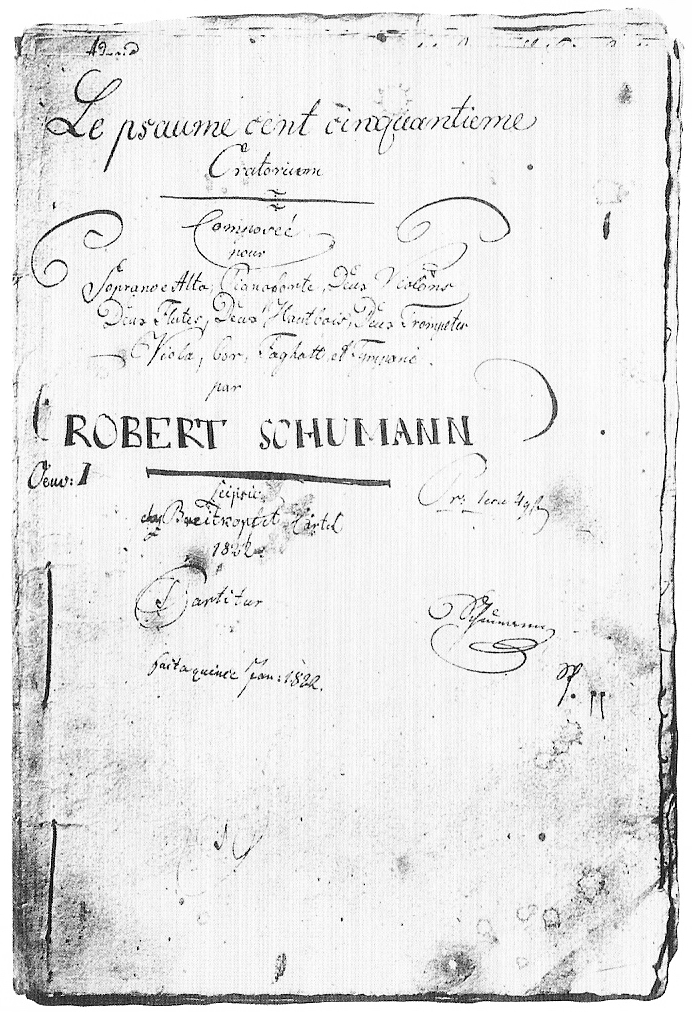 Le psaume cent cinquantieme
Oratorium
Composeé
pour
Soprano e Alto, Pianoforte, Deux Violons
Deux Flutes, Deux Hautbois, Deux Trompetes
Viola, Faghott, et Timpani.
par
ROBERT SCHUMANN
Oeuv: I
Leipzic
chez Breitkopf et Härtel
1822.
Partitur
Schumann
Fait a quinze Jan: 1822.